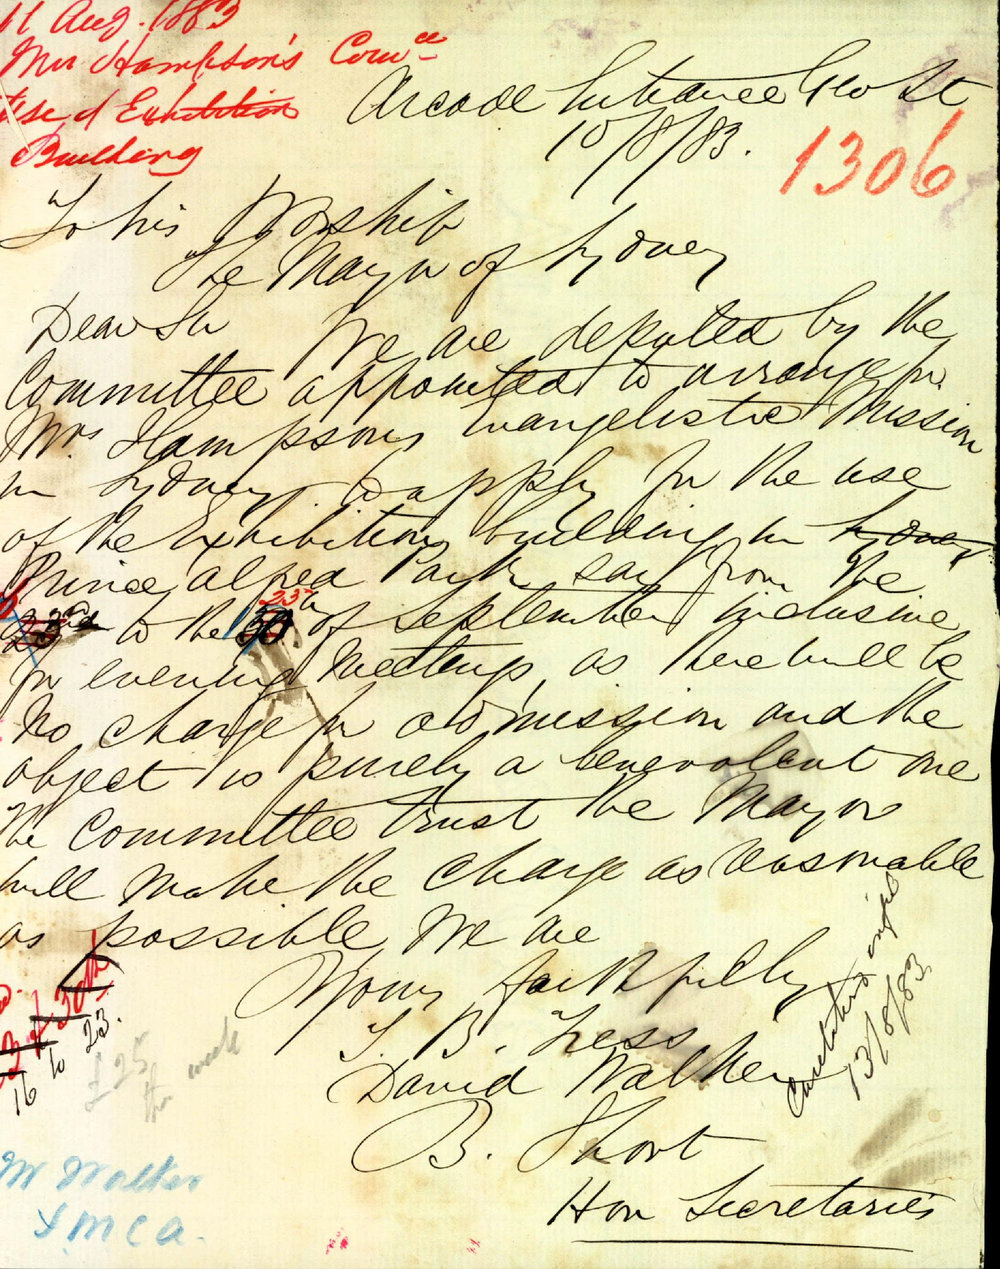 11 Aug. 1883
Mrs Hampson's Com^ee
Use of Exhibition
Building
Arcade Entrance Geo St
10/8/83.
1306
To his Worship
The Mayor of Sydney
Dear Sir We are deputed by the
Committee appointed to arrange for
Mrs Hampsons Evangelistic Mission
in Sydney, to apply for the use
of the Exhibition building in Sydney
Prince Alfred Park say from the
23rd to the 30 23rd of September inclusive
for evening Meetings, as there will be
No charge for admission and the
object is purely a benevolent one
the Committee trust the Mayor
will make the charge as reasonable
as possible, We are
Yours faithfully
T. B. Tress
David Walker
B. Short
Hon Secretaries
30th
16 to 23.
£25
week
13/8/83
Mr Walker
Y.M.C.A.